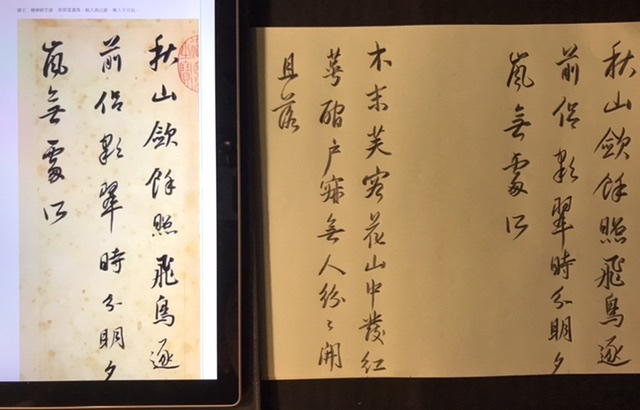 秋山歛餘照飛鳥逐
前侶彩翠時分明夕
嵐無處所
秋山歛餘照飛鳥逐
前侶彩翠時分明夕
嵐無處所
木末芙蓉花山中發紅
萼磵戶寂無人紛〻開
且落